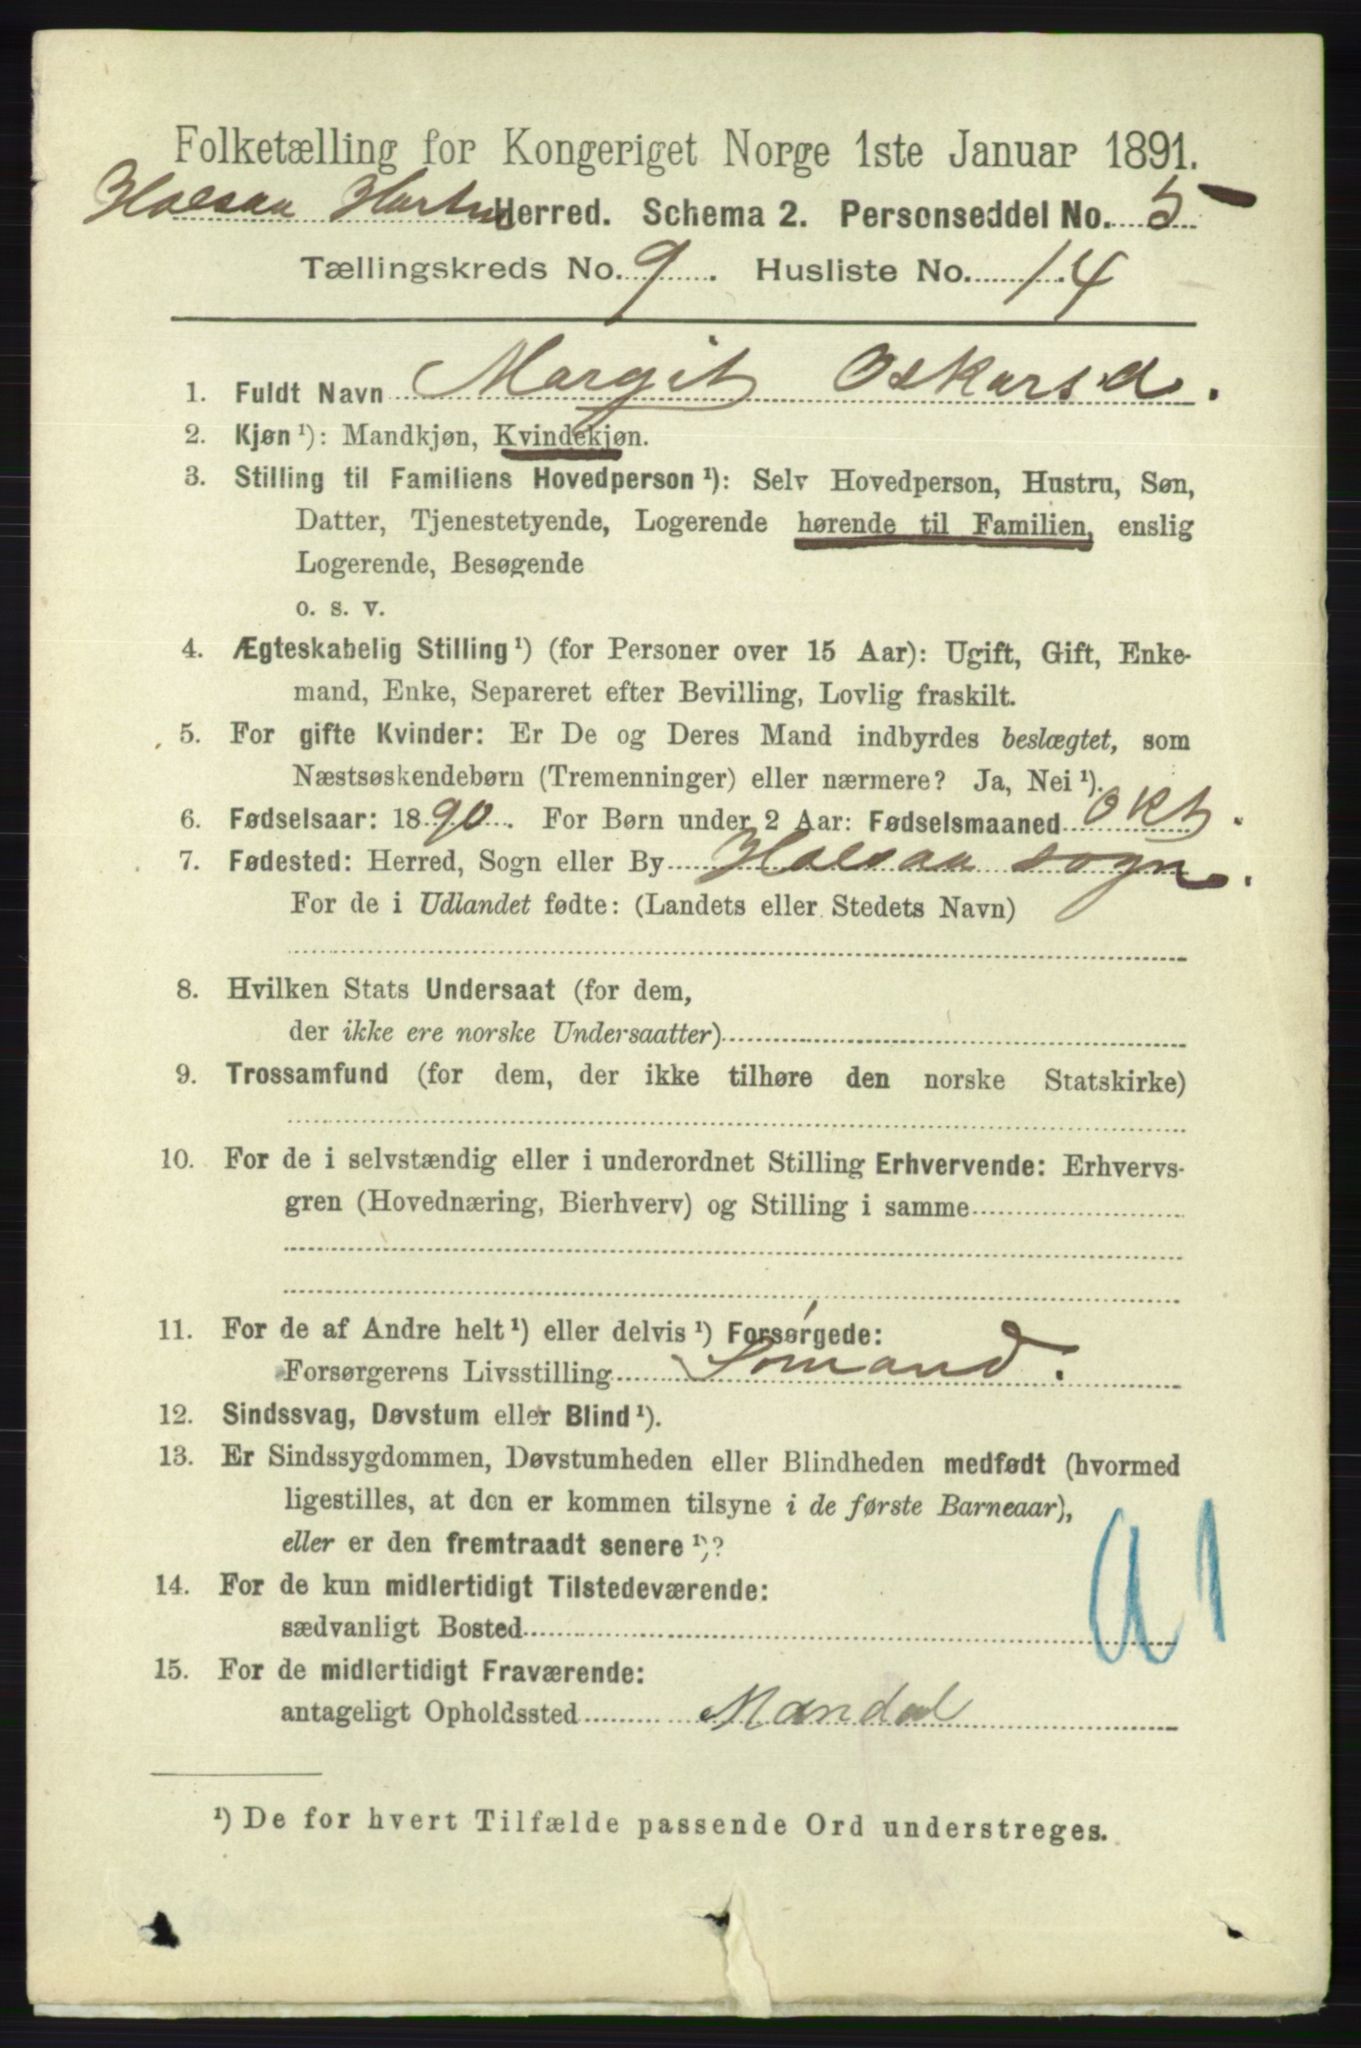 Folketælling for Kongeriget Norge 1ste Januar 1891.
Halsaa Hartm Herred. Schema 2. Personseddel No. 5
Tællingskreds No. 9. Husliste No. 14
1. Fuldt Navn Margit Oskarsd.
2. Kjøn ¹): Mandkjøn, Kvindekjøn.
3. Stilling til Familiens Hovedperson ¹): Selv Hovedperson, Hustru, Søn,
Datter, Tjenestetyende, Logerende hørende til Familien, enslig
Logerende, Besøgende
o. s. v.
4. Ægteskabelig Stilling ¹) (for Personer over 15 Aar): Ugift, Gift, Enke-
mand, Enke, Separeret efter Bevilling, Lovlig fraskilt.
5. For gifte Kvinder: Er De og Deres Mand indbyrdes beslægtet, som
Næstsøskendebørn (Tremenninger) eller nærmere? Ja, Nei ¹).
6. Fødselsaar: 1890. For Børn under 2 Aar: Fødselsmaaned Okt.
7. Fødested: Herred, Sogn eller By Halsaa sogn.
For de i Udlandet fødte: (Landets eller Stedets Navn)
8. Hvilken Stats Undersaat (for dem,
der ikke ere norske Undersaatter)
9. Trossamfund (for dem, der ikke tilhøre den norske Statskirke)
10. For de i selvstændig eller i underordnet Stilling Erhvervende: Erhvervs-
gren (Hovednæring, Bierhverv) og Stilling i samme
11. For de af Andre helt ¹) eller delvis ¹) Forsørgede:
Forsørgerens Livsstilling Sömand.
12. Sindssvag, Døvstum eller Blind ¹).
13. Er Sindssygdommen, Døvstumheden eller Blindheden medfødt (hvormed
ligestilles, at den er kommen tilsyne i de første Barneaar),
eller er den fremtraadt senere ¹)?
14. For de kun midlertidigt Tilstedeværende:
sædvanligt Bosted
a1
15. For de midlertidigt Fraværende:
antageligt Opholdssted Mandal
¹) De for hvert Tilfælde passende Ord understreges.